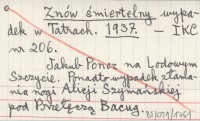 Znów śmiertelny wypa-
dek w Tatrach. 1937. – IKC
nr 206.
Jakub Poncz na Lodowym
Szczycie. Ponadto wypadek złama-
nia nogi Alicji Szymańskiej
pod Przełęczą Bacug.